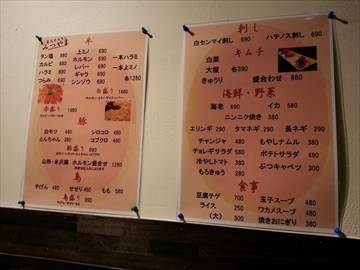 みつやま
牛
タン塩 880
上ミノ 690
一本ハラミ
カルビ 880
ホルモン 580
一本上ミノ
ハラミ 880
レバー 580
つらみ 690
ギャラ 580
各1280
シンゾウ 580
赤盛り
白盛り
豚
白モツ 480
シロコロ 480
とんちゃん 580
コブクロ 480
豚盛り 980
山形・米沢豚 ホルモン盛合せ 1280
鳥
やげん 480
せせり 480
もも 580
鳥盛り 980
刺し
白センマイ刺し 690
ハチノス刺し 690
キムチ
白菜
大根 各390
きゅうり
盛合わせ 880
海鮮・野菜
海老 690
イカ 580
ニンニク焼き 380
エリンギ 290
タマネギ 290
長ネギ 290
チャンジャ 480
もやしナムル 380
チョレギサラダ 580
ポテトサラダ 480
冷やしトマト 380
ぶつキャベツ 300
もろきゅう 280
食事
豆腐チゲ 700
玉子スープ 480
ライス 250
ワカメスープ 480
(大) 300
焼きおにぎり 380